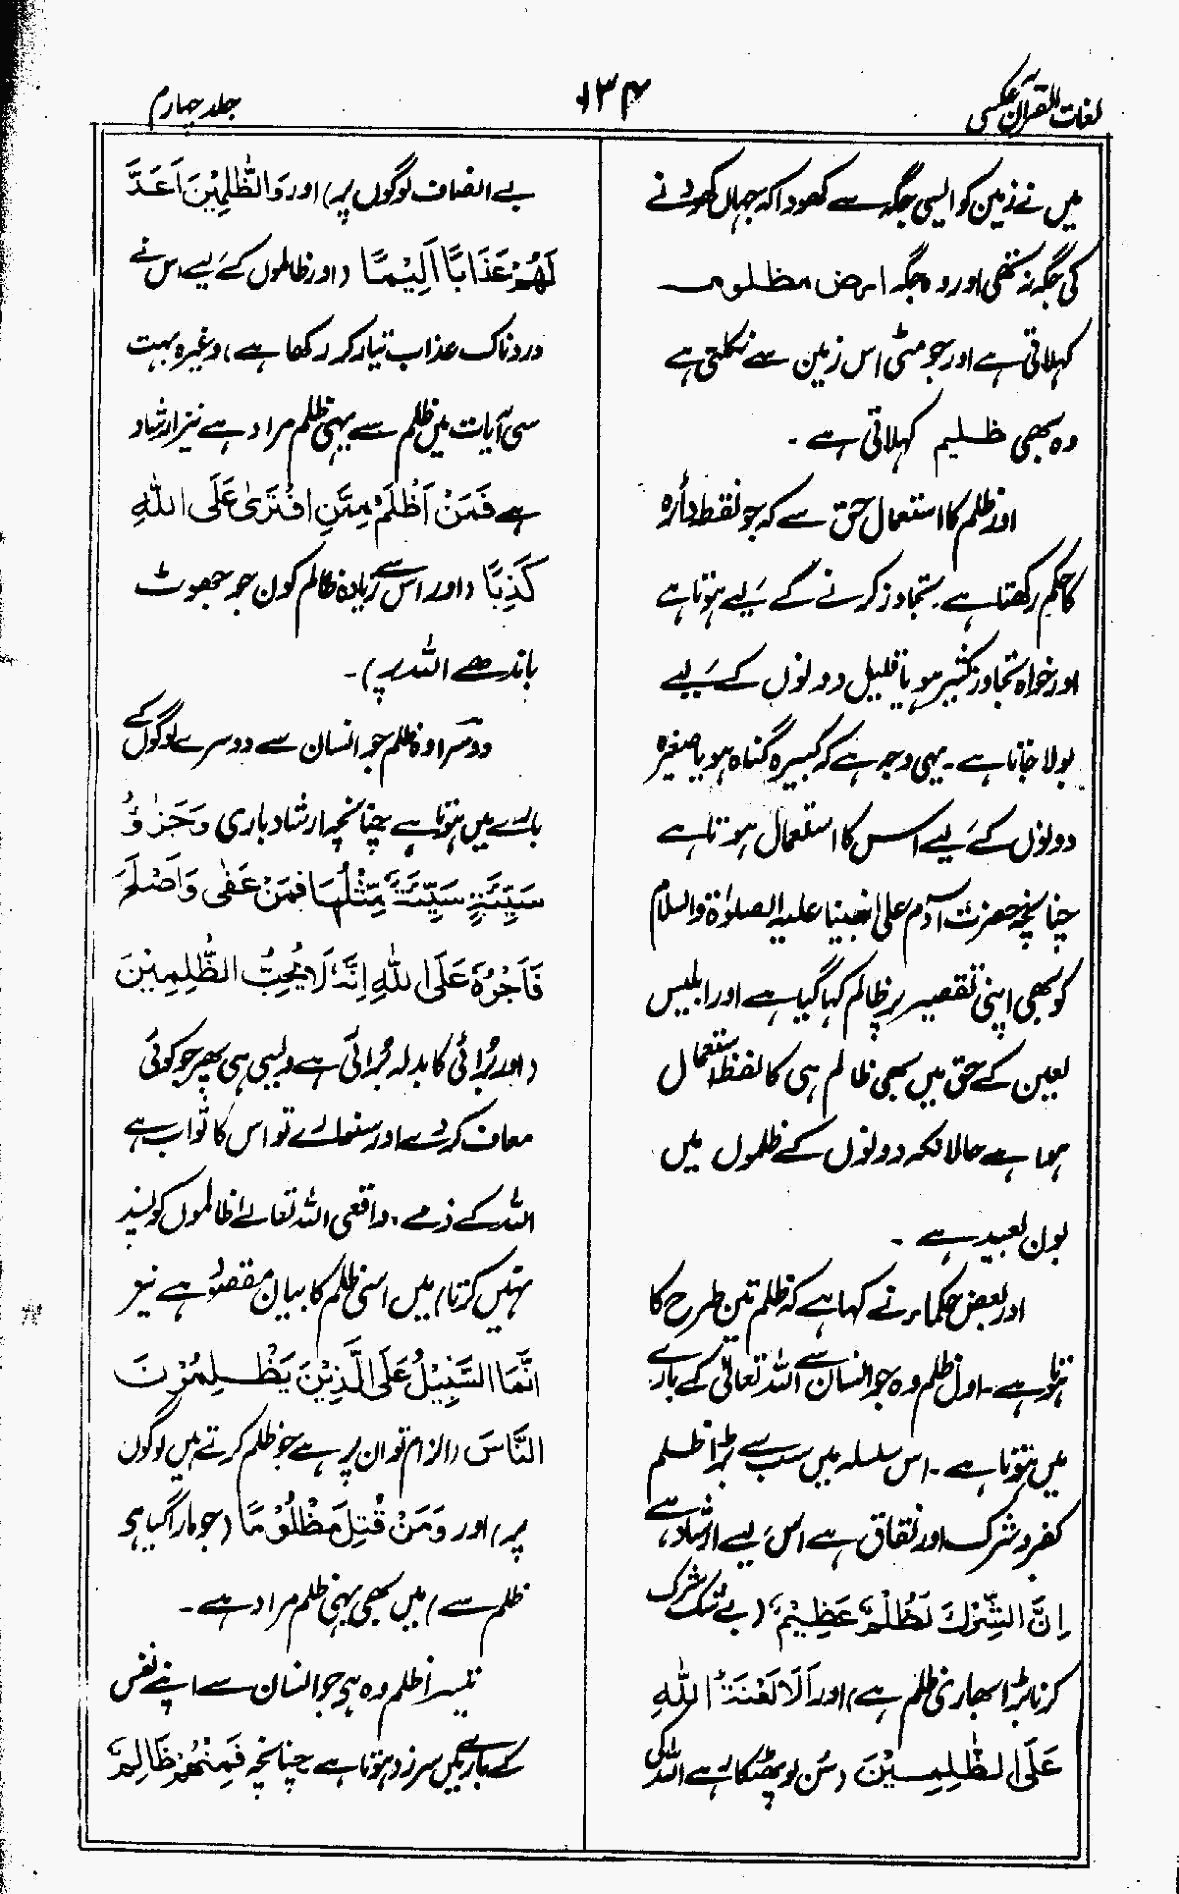 لغات القرآن عکسی
۱۳۴
جلد چہارم
میں نے زمین کو ایسی جگہ سے کھودا کہ جہاں کھودنے
کی جگہ نہ تھی اور وہ جگہ ارض مظلومہ
کہلاتی ہے اور جو مٹی اس زمین سے نکلتی ہے
وہ بھی ظلیم کہلاتی ہے ۔
اور ظلم کا استعمال حق سے کہ جو نقطہ دائرہ
کا حکم رکھتا ہے ۔ تجاوز کرنے کے لیے ہوتا ہے
اور خواہ تجاوز کثیر ہو یا قلیل دونوں کے لیے
بولا جاتا ہے ۔ یہی وجہ ہے کہ کبیرہ گناہ ہو یا صغیرہ
دونوں کے لیے اس کا استعمال ہوتا ہے
چنانچہ حضرت آدم علیٰ نبینا علیہ الصلوٰۃ والسلام
کو بھی اپنی تقصیر پر ظالم کہا گیا ہے اور ابلیس
لعین کے حق میں بھی ظالم ہی کا لفظ استعمال
ہوا ہے حالانکہ دونوں کے ظلموں میں
بون بعید ہے ۔
اور بعض حکماء نے کہا ہے کہ ظلم تین طرح کا
ہوتا ہے ۔ اول ظلم وہ جو انسان سے اللہ تعالیٰ کے بارے
میں ہوتا ہے ۔ اس سلسلہ میں سب سے بڑا ظلم
کفر و شرک اور نفاق ہے اس لیے ارشاد ہے،
اِنَّ الشِّرْكَ لَظُلْمٌ عَظِيْمٌ (بے شک شرک
کرنا بڑا بھاری ظلم ہے) اور اَلَا لَعْنَةُ اللّٰهِ
عَلَى الظّٰلِمِيْنَ (سن لو پھٹکار ہے اللہ کی
بے انصاف لوگوں پر) اور وَالظّٰلِمِيْنَ اَعَدَّ
لَهُمْ عَذَابًا اَلِيْمًا (اور ظالموں کے لیے اس نے
دردناک عذاب تیار کر رکھا ہے) وغیرہ بہت
سی آیات میں ظلم سے یہی ظلم مراد ہے نیز ارشاد
ہے فَمَنْ اَظْلَمُ مِمَّنِ افْتَرٰى عَلَى اللّٰهِ
كَذِبًا (اور اس سے زیادہ ظالم کون جو جھوٹ
باندھے اللہ پر) ۔
دوسرا وہ ظلم جو انسان سے دوسرے لوگوں کے
بارے میں ہوتا ہے چنانچہ ارشاد باری وَجَزٰؤُ
سَيِّئَةٍ سَيِّئَةٌ مِّثْلُهَا فَمَنْ عَفٰى وَاَصْلَحَ
فَاَجْرُهٗ عَلَى اللّٰهِ اِنَّهٗ لَا يُحِبُّ الظّٰلِمِيْنَ
(اور بُرائی کا بدلہ بُرائی ہے ویسی ہی پھر جو کوئی
معاف کردے اور سنوارے تو اس کا ثواب ہے
اللہ کے ذمے، واقعی اللہ تعالےٰ ظالموں کو پسند
نہیں کرتا) میں اسی ظلم کا بیان مقصود ہے نیز
اِنَّمَا السَّبِيْلُ عَلَى الَّذِيْنَ يَظْلِمُوْنَ
النَّاسَ (الزام تو ان پر ہے جو ظلم کرتے ہیں لوگوں
پر) اور وَمَنْ قُتِلَ مَظْلُوْمًا (جو مارا گیا ہو
ظلم سے) میں بھی یہی ظلم مراد ہے ۔
تیسرا ظلم وہ ہے جو انسان سے اپنے نفس
کے بارے میں سرزد ہوتا ہے چنانچہ فَمِنْهُمْ ظَالِمٌ